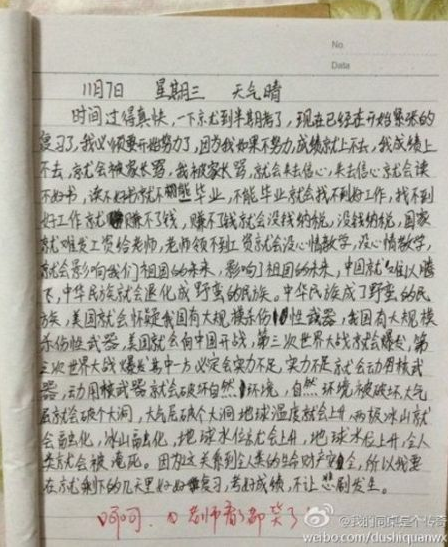 No.
Data
11月7日 星期三 天气晴
时间过得真快，一下就到半期考了，现在已经在开始紧张的
复习了，我必须要开始努力了，因为我如果不努力，成绩就上不去，我成绩上
不去，就会被家长骂，我被家长骂，就会失去信心，失去信心就会读
不好书，读不好书就不能毕业，不能毕业就会找不到好工作，找不到
好工作就赚不了钱，赚不了钱就会没钱纳税，没钱纳税，国家
就难发工资给老师，老师领不到工资就会没心情教学，没心情教学，
就会影响我们祖国的未来，影响了祖国的未来，中国就难以腾
飞，中华民族就会退化成野蛮的民族。中华民族成了野蛮的民
族，美国就会怀疑我国有大规模杀伤性武器，我国有大规模
杀伤性武器，美国就会向中国开战，第三次世界大战就会爆发，第
三次世界大战爆发其中一方必定会实力不足，实力不足就会动用核武
器，动用核武器就会破坏自然环境，自然环境被破坏，大气
层就会破个大洞，大气层破个大洞地球温度就会上升，两极冰山就
会融化，冰山融化，地球水位就会上升，地球水位上升，全人
类就会被淹死。因为这关系到全人类的生命财产安全，所以我要
在就剩下的几天里好好复习，考好成绩，不让悲剧发生。
呵呵，老师看了都笑了
weibo.com/dushiquanw